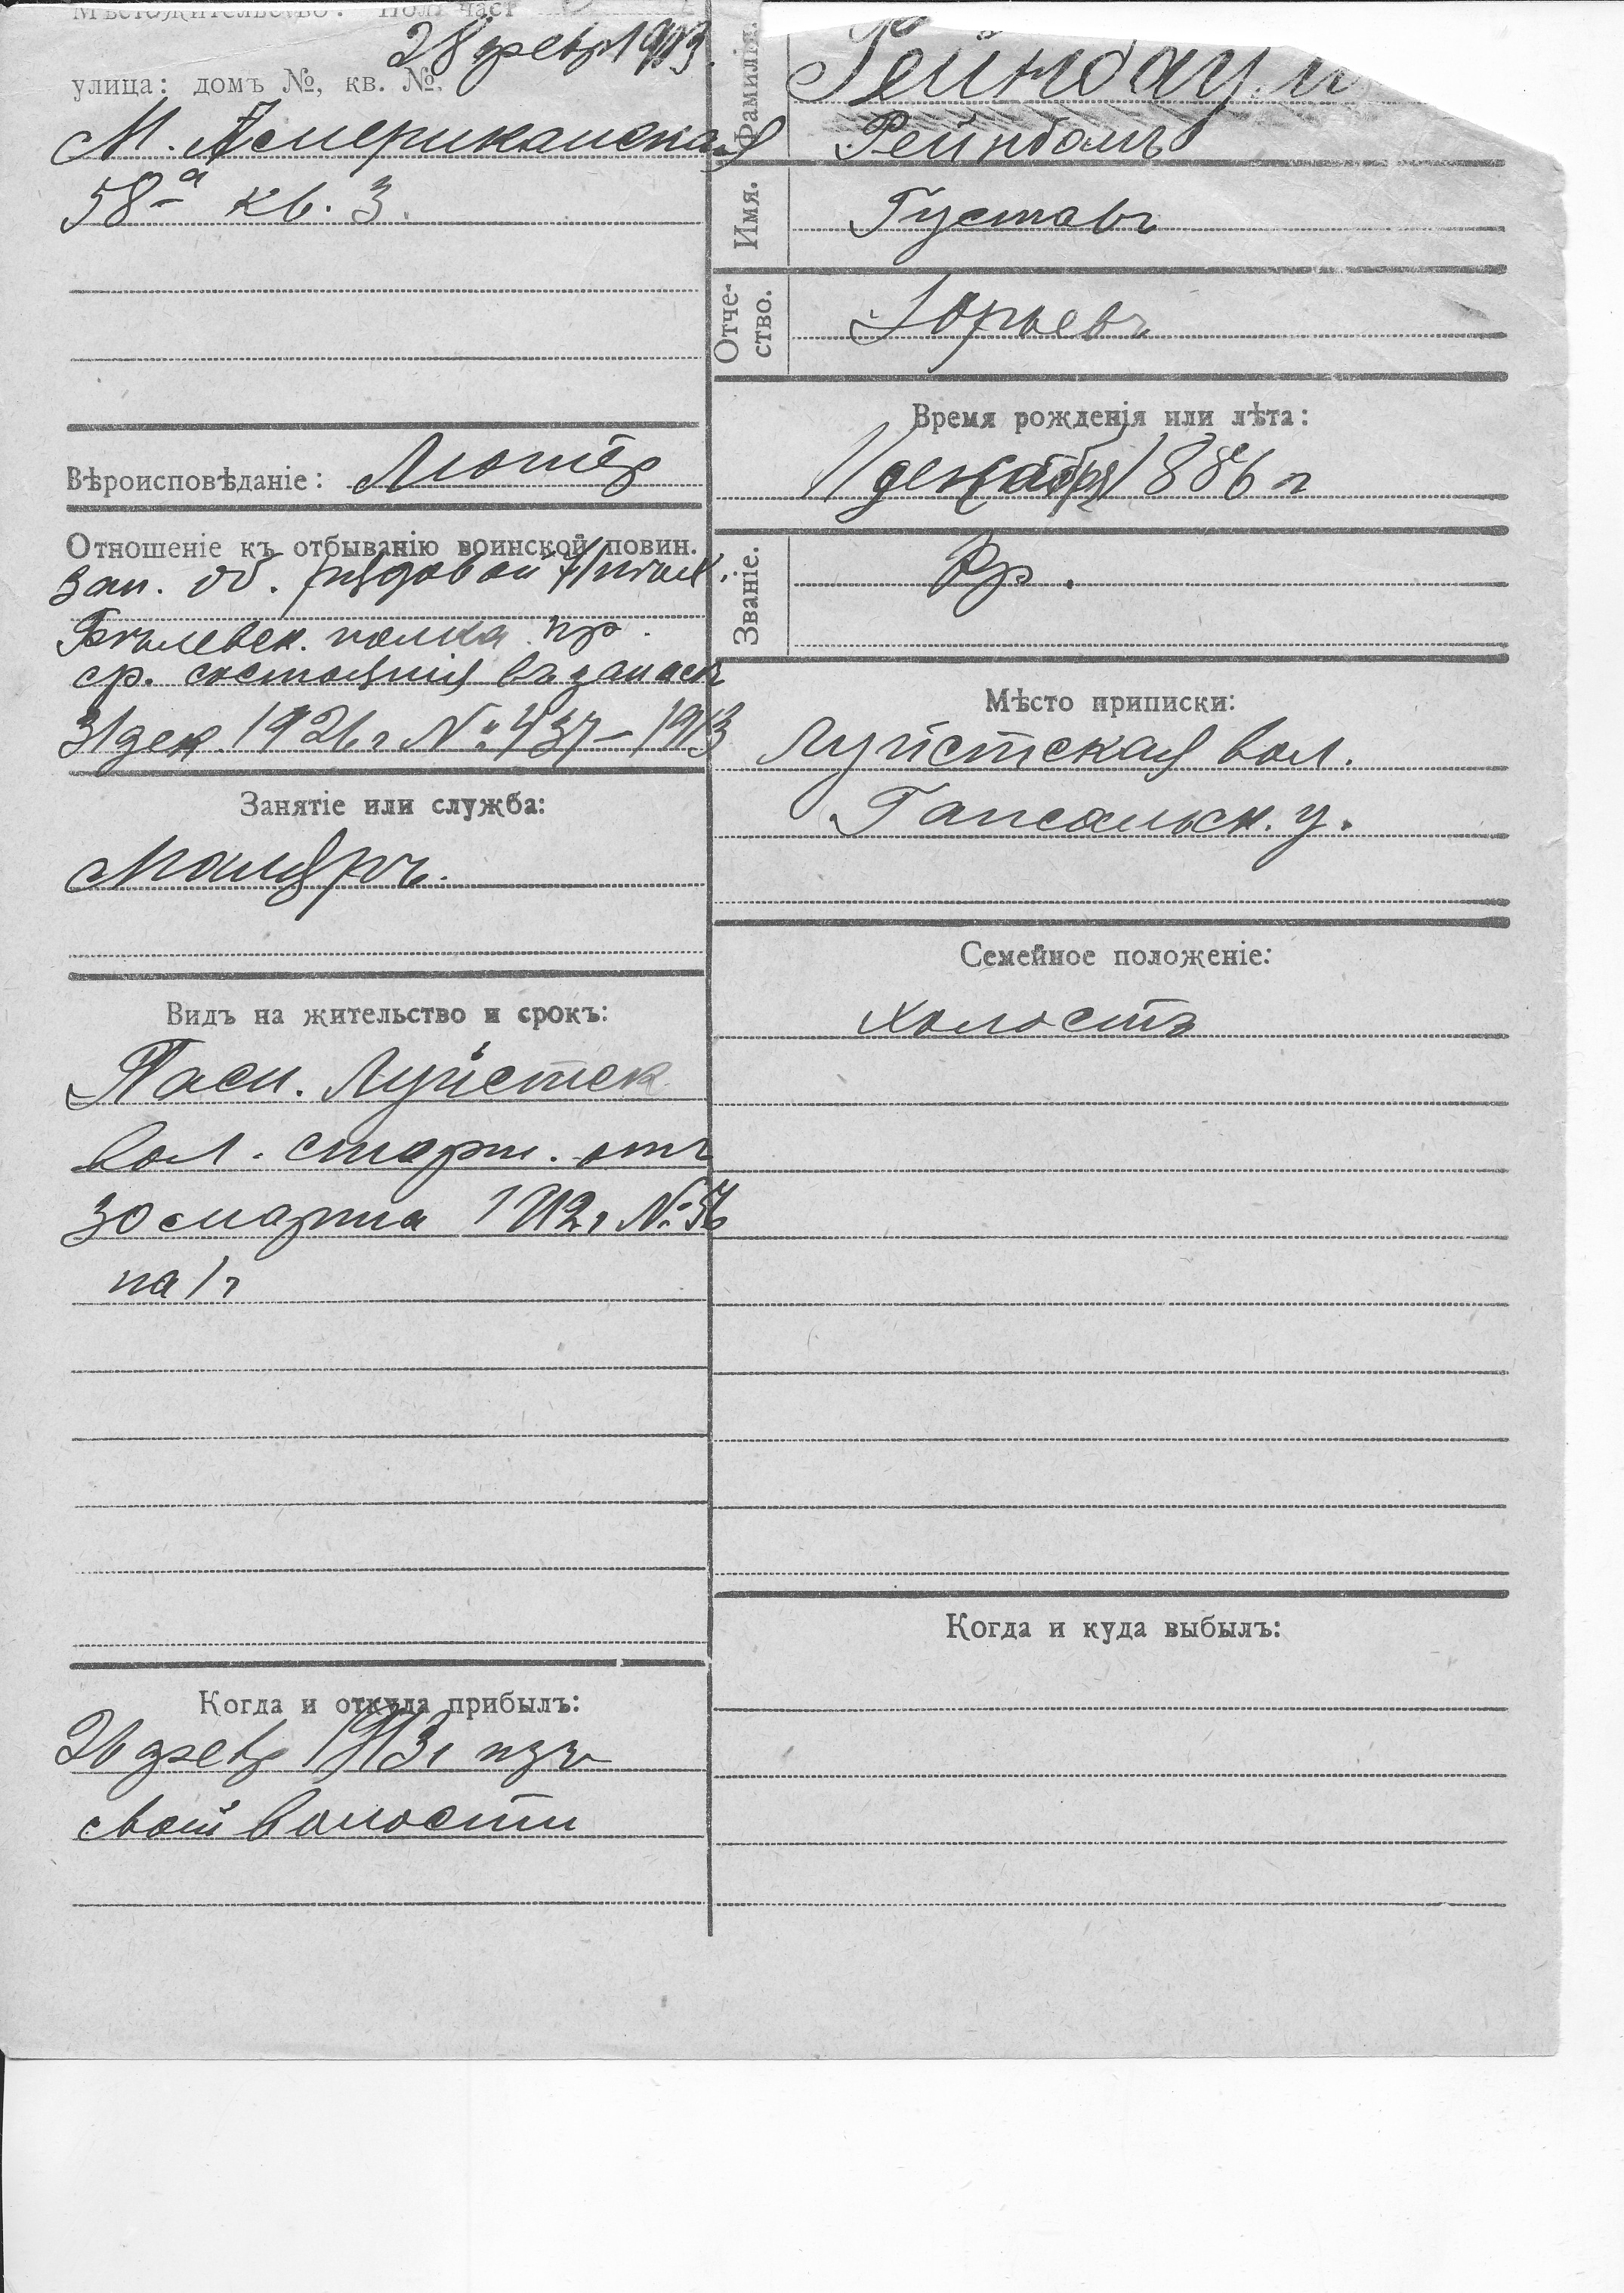 Мѣстожительство: Пол. част
28 февр 1913.
улица: домъ №, кв. №.
М. Американская
58-а кв. 3.
Вѣроисповѣданіе: Лютер
Отношеніе къ отбыванію воинской повин.
зап. об. рядовой
полка пр.
ср. состоянія въ запасѣ
31 дек. 1926 г № 437 – 1913
Занятіе или служба:
Маляръ.
Видъ на жительство и срокъ:
Пасп. Луйстск
вол. старш. отъ
30 марта 1912 г № 56
на 1 г
Когда и откуда прибылъ:
26 февр 1913 г изъ
своей волости
Фамилія.
Рейнбаум
Рейнбомъ
Имя.
Густавъ
Отче-
ство.
Юрьевъ
Время рожденія или лѣта:
11 декабря 1886 г
Званіе.
Кр.
Мѣсто приписки:
Луйстская вол.
Гапсальск. у.
Семейное положеніе:
холостъ
Когда и куда выбылъ: